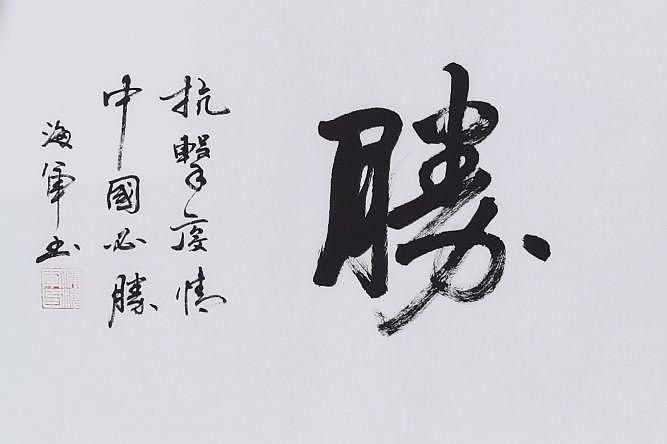 勝
抗擊疫情
中國必勝
海軍書